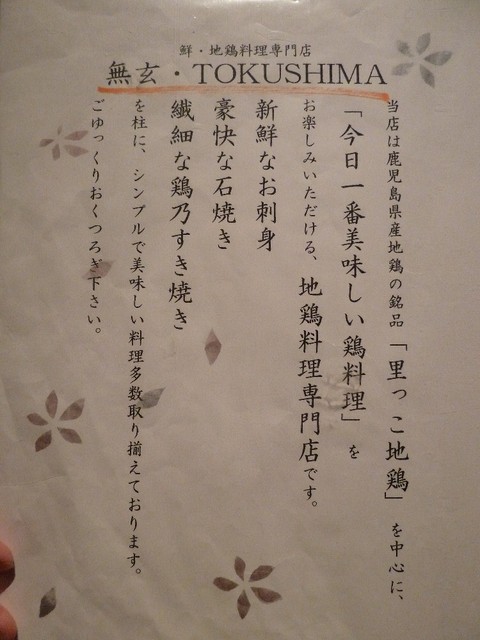 鮮・地鶏料理専門店
無玄・TOKUSHIMA
当店は鹿児島県産地鶏の銘品「里っこ地鶏」を中心に、
「今日一番美味しい鶏料理」を
お楽しみいただける、地鶏料理専門店です。
新鮮なお刺身
豪快な石焼き
繊細な鶏乃すき焼き
を柱に、シンプルで美味しい料理多数取り揃えております。
ごゆっくりおくつろぎ下さい。